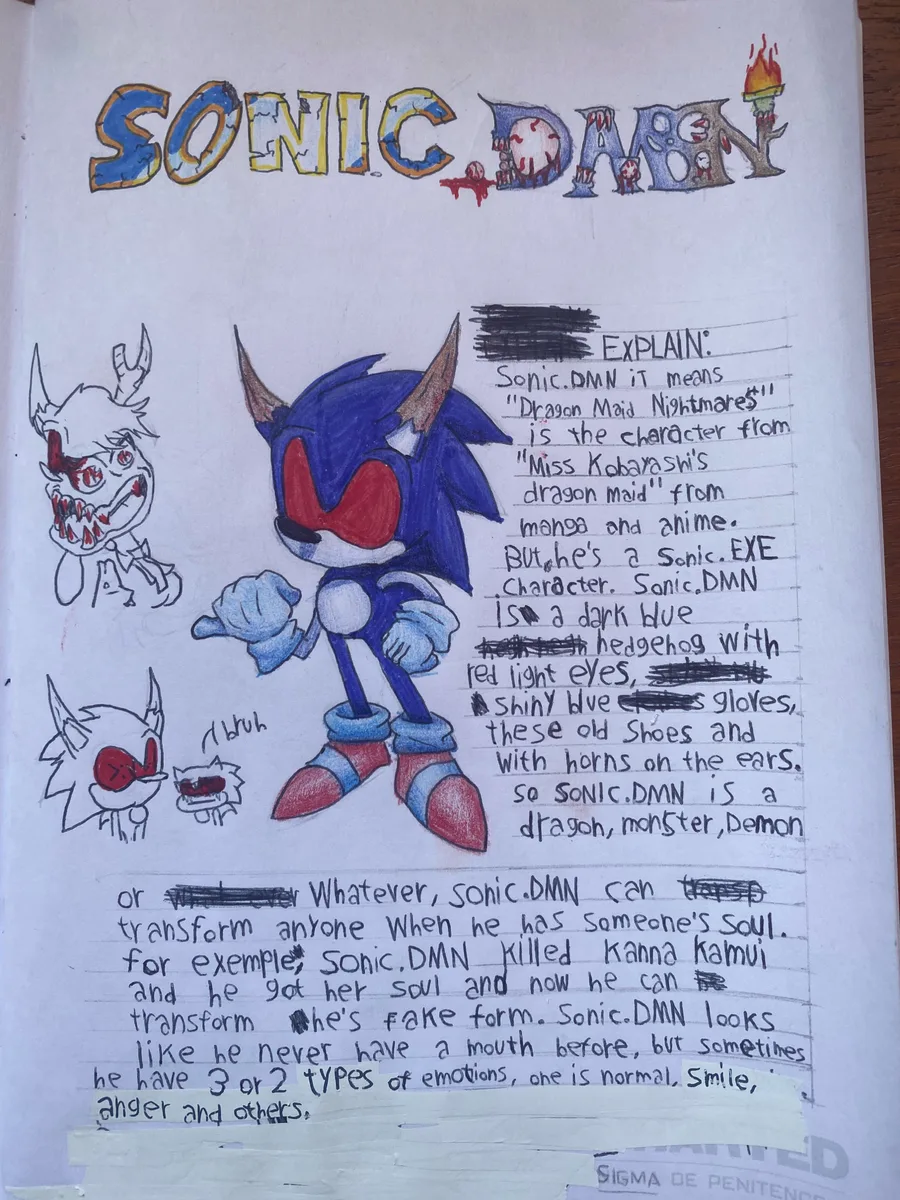 SONIC.DMN
EXPLAIN:
Sonic.DMN iT means
"Dragon Maid Nightmare$"
is the character from
"Miss Kobayashi's
dragon maid" from
manga and anime.
But, he's a Sonic.EXE
Character. Sonic.DMN
Is a dark blue
hedgehog with
red light eyes,
shiny blue gloves,
these old Shoes and
with horns on the ears.
bruh
so SONIC.DMN is a
dragon, mon5ter, Demon
or Whatever, sonic.DMN can
transform anyone When he has someone's soul.
for exemple, Sonic.DMN killed Kanna Kamui
and he got her soul and now he can
transform he's fake form. Sonic.DMN looks
like he never have a mouth before, but sometimes
he have 3 or 2 types of emotions, one is normal, Smile,
anger and others.
SIGMA DE PENITENC